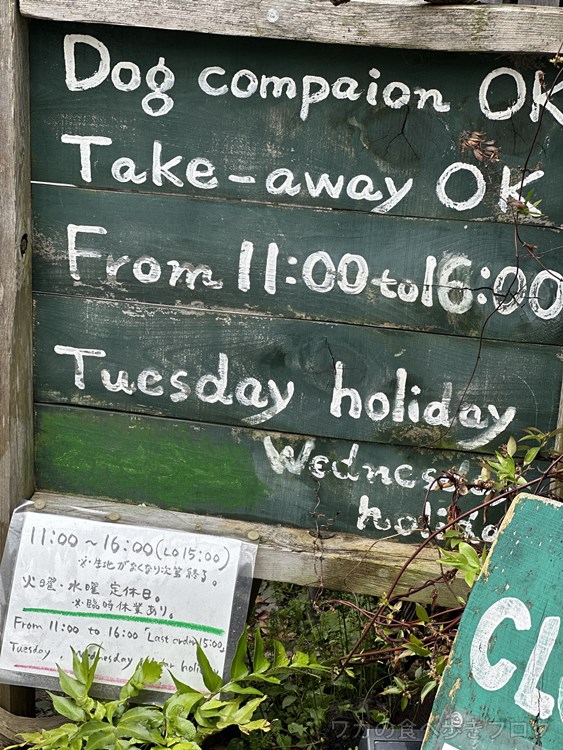 Dog compaion OK
Take-away OK
From 11:00 to 16:00
Tuesday holiday
11:00 ~ 16:00 (LO 15:00)
※生地がなくなり次第終る。
火曜・水曜 定休日。
※臨時休業あり。
From 11:00 to 16:00 "Last order 15:00"
Tuesday Wednesday holiday
ワカの食べ歩きブログ